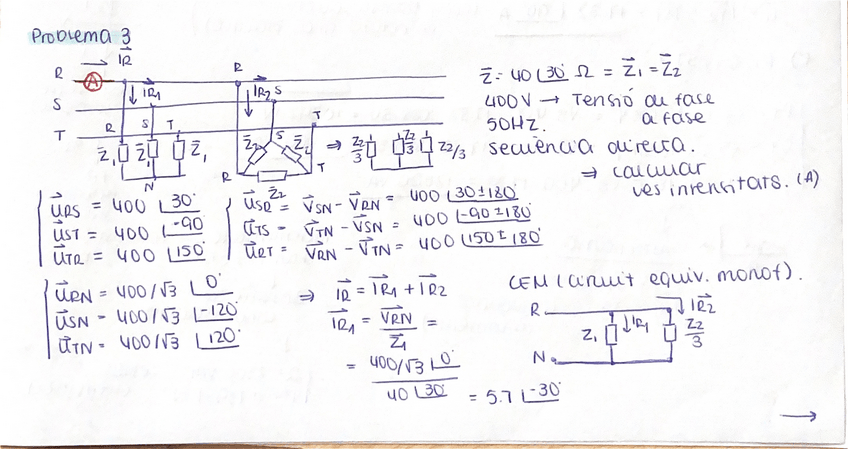 Problema 3
IR
R A R
IR1 IR2
S S
T R S T T
Z1 Z1 Z1 Z2 S Z2 ⇒ Z2/3 Z2/3 Z2/3
N R Z2 T
Z = 40∠30° Ω = Z1 = Z2
400V → Tensió de fase a fase
50Hz.
secuència directa.
⇒ calcular les intensitats. (A)
URS = 400 ∠30°
UST = 400 ∠-90
UTR = 400 ∠150°
USR = VSN - VRN = 400 ∠30±180°
UTS = VTN - VSN = 400 ∠-90±180°
URT = VRN - VTN = 400 ∠150±180°
URN = 400/√3 ∠0°
USN = 400/√3 ∠-120°
UTN = 400/√3 ∠120°
⇒ IR = IR1 + IR2
IR1 = VRN/Z1 =
= 400/√3 ∠0° / 40∠30° = 5.7 ∠-30°
CEM (circuit equiv. monof).
R IR2
Z1 IR1 Z2/3
N
→